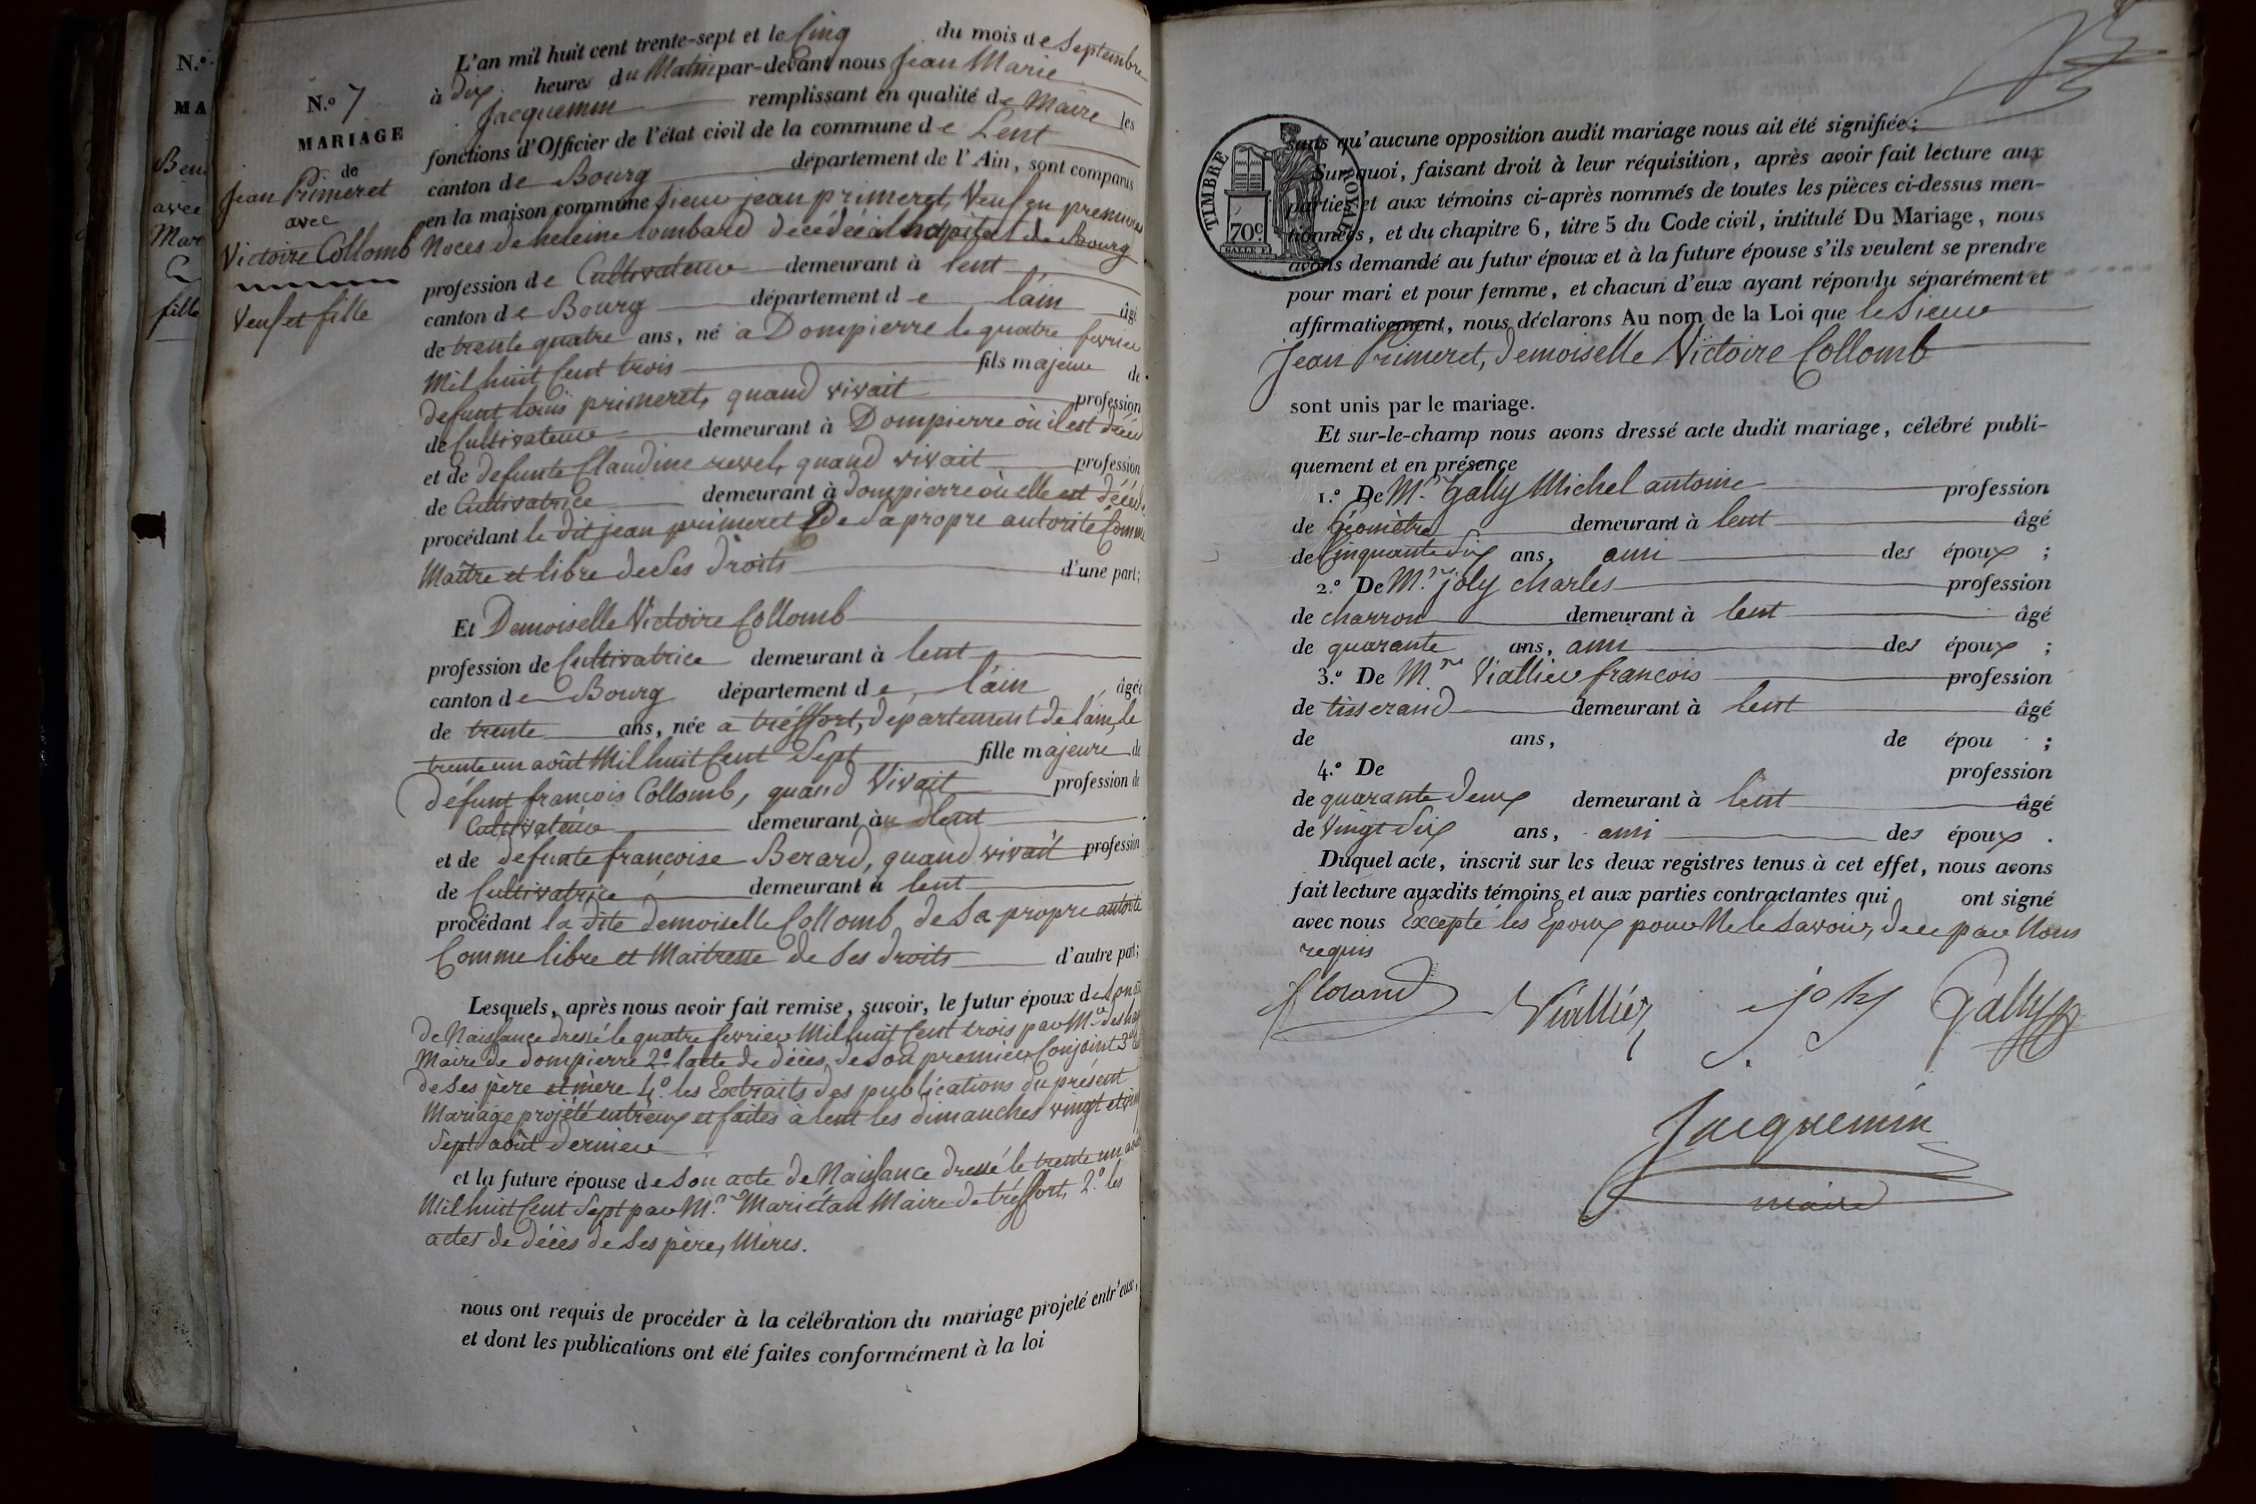 N.º
MA
Ben
avec
Mar
C
fille
N.º 7
MARIAGE
de
Jean Primeret
avec
Victoire Collomb
Veuf et fille
L'an mil huit cent trente-sept et le Cinq du mois de Septembre
à dix heures du Matin par-devant nous Jean Marie
Jacquemin remplissant en qualité de Maire les
fonctions d'Officier de l'état civil de la commune de Lent
canton de Bourg département de l'Ain, sont comparus
en la maison commune Sieur jean primeret, Veuf en premieres
Noces de heleine Lombard décédée à l'hopital de Bourg
profession de Cultivateur demeurant à lent
canton de Bourg département de l'ain âgé
de trente quatre ans, né à Dompierre le quatre fevrier
Mil huit Cent trois fils majeur de
defunt louis primeret, quand vivait profession
de Cultivateur demeurant à Dompierre où il est décédé
et de defunte Claudine revel, quand vivait profession
de Cultivatrice demeurant à dompierre où elle est décédée
procédant le dit jean primeret De Sa propre autorité Comme
Maître et libre de Ses droits d'une part;
Et Demoiselle Victoire Collomb
profession de Cultivatrice demeurant à lent
canton de Bourg département de l'ain âgée
de trente ans, née a tréffort, département de l'ain, le
trente un août Mil huit Cent Sept fille majeure de
défunt françois Collomb, quand Vivait profession de
Cultivateur demeurant à lent
et de defunte françoise Berard, quand vivait profession
de Cultivatrice demeurant à lent
procédant la dite demoiselle Collomb, de Sa propre autorité
Comme libre et Maitresse de Ses droits d'autre part;
Lesquels, après nous avoir fait remise, savoir, le futur époux de Son acte
de Naissance dressé le quatre fevrier Mil huit Cent trois par Mr
Maire de dompierre 2º l'acte de décès, de Son premier Conjoint 3º
de Ses père et mère 4º les Extraits des publications du présent
Mariage projété entr'eux et faites à lent les dimanches vingt et vingt
Sept août dernier
et la future épouse de Son acte de Naissance dressé le trente un août
Mil huit Cent Sept par Mr Mariétan Maire de tréffort, 2º les
actes de décès de Ses père, Mères.
nous ont requis de procéder à la célébration du mariage projeté entr'eux,
et dont les publications ont été faites conformément à la loi
TIMBRE ROYAL
70c
sans qu'aucune opposition audit mariage nous ait été signifiée;
Sur quoi, faisant droit à leur réquisition, après avoir fait lecture aux
parties et aux témoins ci-après nommés de toutes les pièces ci-dessus men-
tionnées, et du chapitre 6, titre 5 du Code civil, intitulé Du Mariage, nous
avons demandé au futur époux et à la future épouse s'ils veulent se prendre
pour mari et pour femme, et chacun d'eux ayant répondu séparément et
affirmativement, nous déclarons Au nom de la Loi que le Sieur
Jean Primeret, Demoiselle Victoire Collomb
sont unis par le mariage.
Et sur-le-champ nous avons dressé acte dudit mariage, célébré publi-
quement et en présence
1.º De Mr Gally Michel antoine profession
de Géomètre demeurant à lent âgé
de Cinquante Six ans, ami des époux ;
2.º De Mr joly charles profession
de charron demeurant à lent âgé
de quarante ans, ami des époux ;
3.º De Mr Viallier françois profession
de tisserand demeurant à lent âgé
de ans, de épou ;
4.º De profession
de quarante deux demeurant à lent âgé
de Vingt Six ans, ami des époux .
Duquel acte, inscrit sur les deux registres tenus à cet effet, nous avons
fait lecture auxdits témoins et aux parties contractantes qui ont signé
avec nous Excepté les Epoux pour Ne le Savoir, de ce par Nous
requis
Viallier joly Gally
Jacquemin
maire